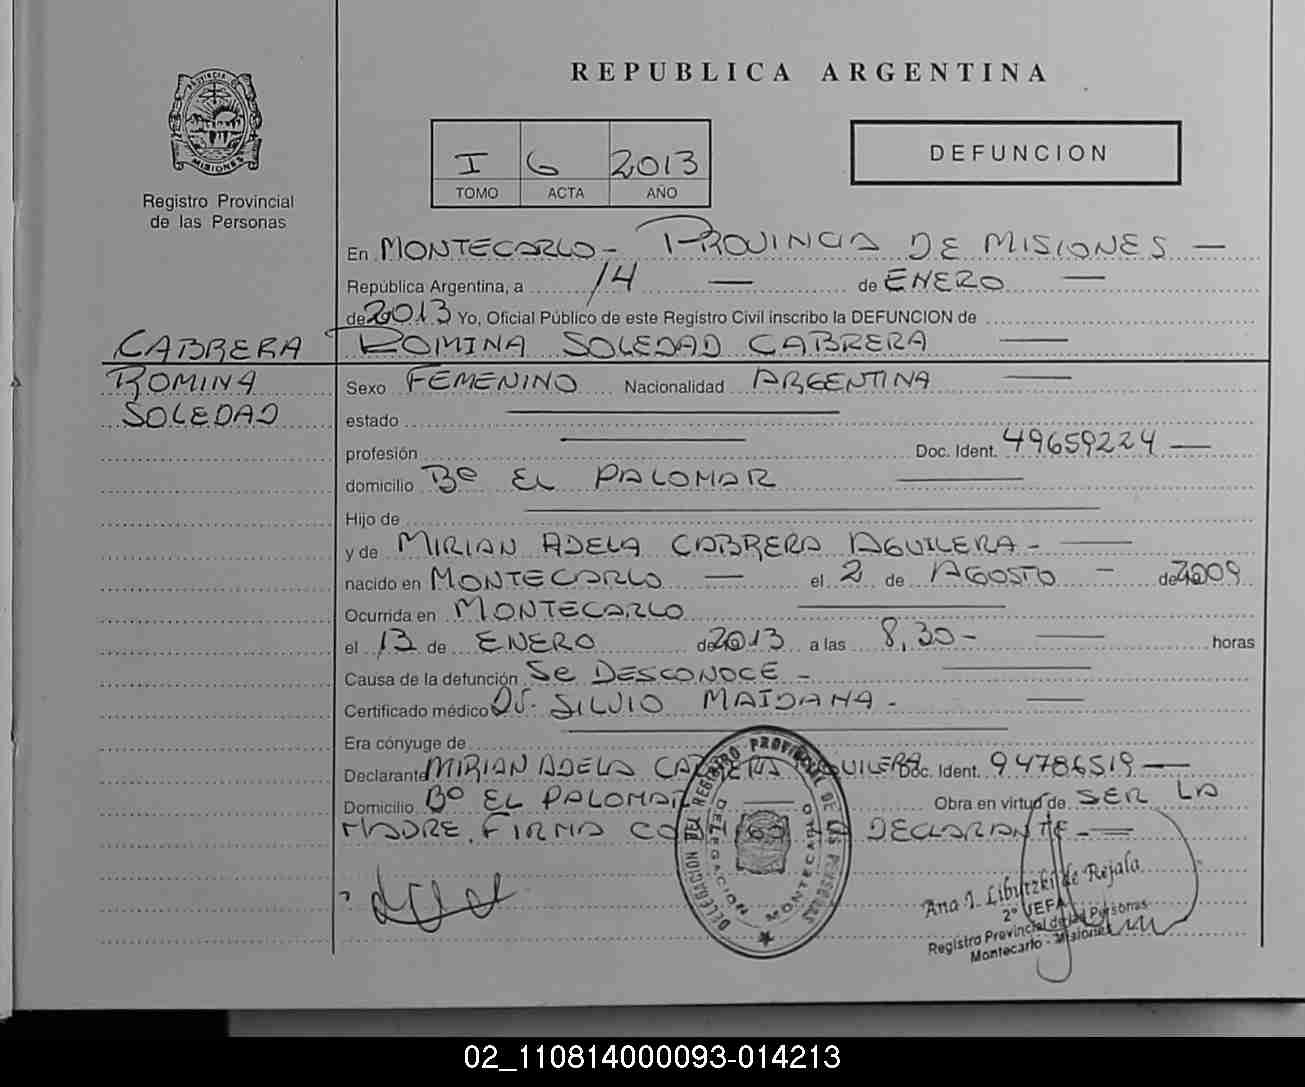 REPUBLICA ARGENTINA
PROVINCIA DE MISIONES
Registro Provincial
de las Personas
I 6 2013
TOMO ACTA AÑO
DEFUNCION
En MONTECARLO - PROVINCIA DE MISIONES —
República Argentina, a 14 — de ENERO —
de 2013 Yo, Oficial Público de este Registro Civil inscribo la DEFUNCION de
CABRERA
ROMINA
SOLEDAD
ROMINA SOLEDAD CABRERA —
Sexo FEMENINO Nacionalidad ARGENTINA —
estado —
profesión — Doc. Ident. 49659224 —
domicilio Bº EL PALOMAR —
Hijo de —
y de MIRIAN ADELA CABRERA AGUILERA - —
nacido en MONTECARLO — el 2 de AGOSTO - de 2009
Ocurrida en MONTECARLO —
el 13 de ENERO de 2013 a las 8,30 - — horas
Causa de la defunción Se DESCONOCE - —
Certificado médico Dr. SILVIO MAIDANA - —
Era cónyuge de —
Declarante MIRIAN ADELA CABRERA AGUILERA Doc. Ident. 94786519 —
Domicilio Bº EL PALOMAR — Obra en virtud de SER LA
MADRE. FIRMA COMO LA DECLARANTE - —
DELEGACION DEL REGISTRO PROVINCIAL DE LAS PERSONAS
DELEGACION MONTECARLO
Ana I. Libutzki de Rejala
2º JEFA
Registro Provincial de las Personas
Montecarlo - Misiones
02_110814000093-014213